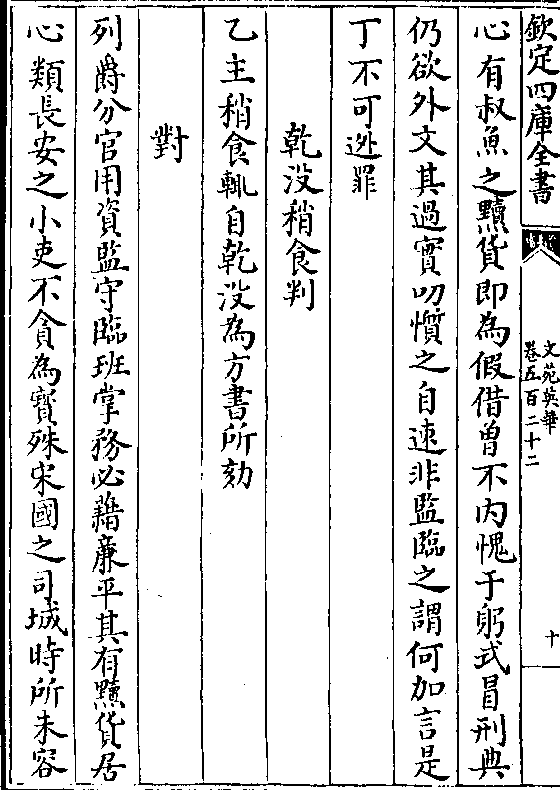 欽定四庫全書
文苑英華
卷五百二十二
十
心有叔魚之黷貨即為假借曾不内愧于躬式冒刑典
仍欲外文其過實叨憤之自速非監臨之謂何加言是
丁不可逃罪
乾没稍食判
乙主稍食輒自乾没為方書所劾
對
列爵分官用資監守臨班掌務必藉廉平其有黷貨居
心類長安之小吏不貪為寳殊宋國之司城時所未容